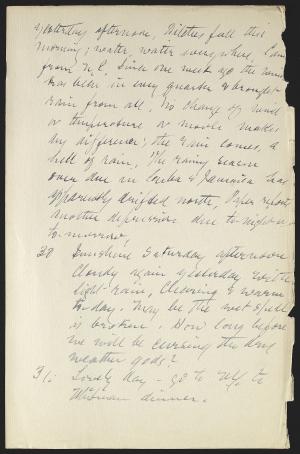 yesterday afternoon, Ditches full this
morning; water, water everywhere, Came
from N.E. Since one week ago the wind
has been in every quarter & brought
rain from all. No change of wind
or temperature or moon makes
any difference; the rain comes, a
hell of rain, The rainy season
over due in Cuba & Jamaica has
apparently drifted north, Paper reports
another depression due to-night or
to-morrow.
30 Sunshine Saturday afternoon
Cloudy again yesterday with
light rain, Clearing & warm
to-day. May be the wet spell
is broken. How long before
we will be cursing the dry
weather gods?
31. Lovely day - go to N.Y. to
Whitman dinner.